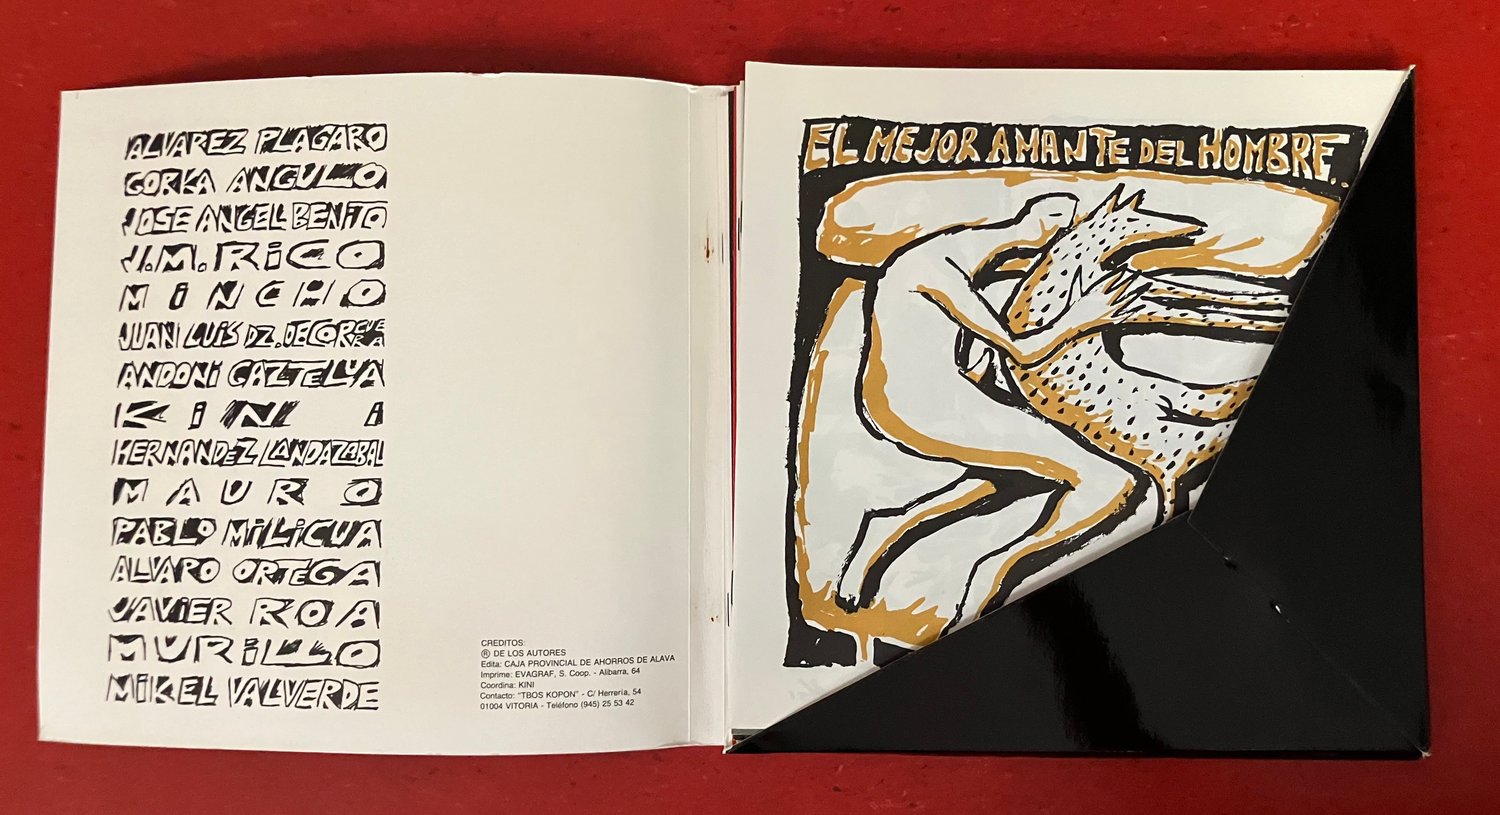 ALVAREZ PLAGARO
GORKA ANGULO
JOSE ANGEL BENITO
J.M. RiCO
MiNCHO
JUAN LUiS DZ. DE CORCUERA
ANDONi GAZTELUA
KiNi
HERNANDEZ LANDAZABAL
MAURO
PABLO MiLiCUA
ALVARO ORTEGA
JAViER ROA
MURiLLO
MiKEL VALVERDE
CREDITOS:
® DE LOS AUTORES
Edita: CAJA PROVINCIAL DE AHORROS DE ALAVA
Imprime: EVAGRAF, S. Coop. - Alibarra, 64
Coordina: KINI
Contacto: "TBOS KOPON" - C/ Herrería, 54
01004 VITORIA - Teléfono (945) 25 53 42
EL MEJOR AMANTE DEL HOMBRE..